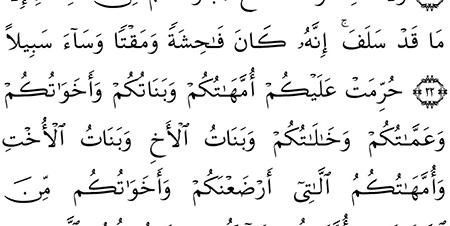 مَا قَدْ سَلَفَ ۚ إِنَّهُۥ كَانَ فَـٰحِشَةً وَمَقْتًا وَسَآءَ سَبِيلاً
﴿٢٢﴾ حُرِّمَتْ عَلَيْكُمْ أُمَّهَـٰتُكُمْ وَبَنَاتُكُمْ وَأَخَوَٰتُكُمْ
وَعَمَّـٰتُكُمْ وَخَـٰلَـٰتُكُمْ وَبَنَاتُ ٱلْأَخِ وَبَنَاتُ ٱلْأُخْتِ
وَأُمَّهَـٰتُكُمُ ٱلَّـٰتِىٓ أَرْضَعْنَكُمْ وَأَخَوَٰتُكُم مِّنَ